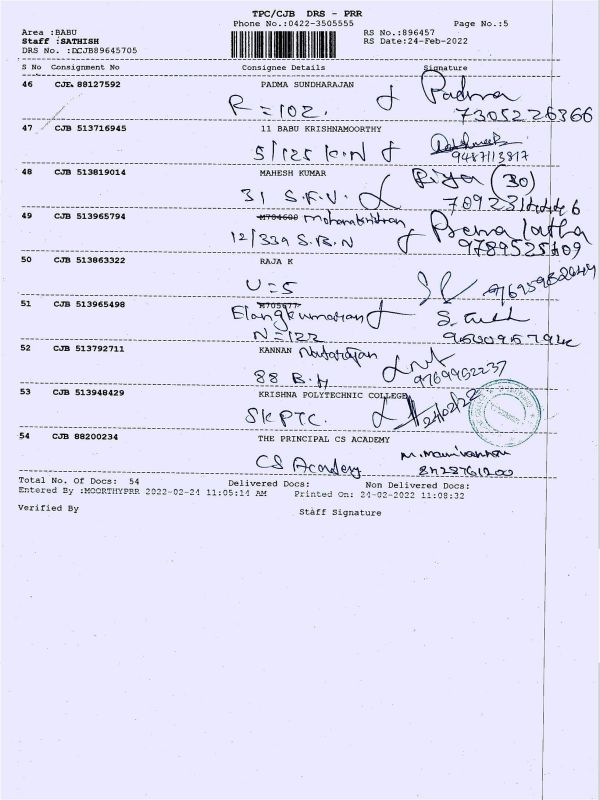 TPC/CJB DRS - PRR
Phone No.:0422-3505555 Page No.:5
Area :BABU RS No.:896457
Staff :SATHISH RS Date:24-Feb-2022
DRS No. :DCJB89645705
S No Consignment No Consignee Details Signature
46 CJB 88127592 PADMA SUNDHARAJAN Padma
R = 102. 7305226366
47 CJB 513716945 11 BABU KRISHNAMOORTHY
5/125 K.N 9487113817
48 CJB 513819014 MAHESH KUMAR Priya (30)
31 S.F.V.
49 CJB 513965794 M704600 Prema latha
12/339 S.B.N 9789525109
50 CJB 513863322 RAJA K
U = 5
51 CJB 513965498 M705677
Elangkumaran
N = 122
52 CJB 513792711 KANNAN Natarajan
88 B.H 9769952237
53 CJB 513948429 KRISHNA POLYTECHNIC COLLEGE
SKPTC. 24/02/22
54 CJB 88200234 THE PRINCIPAL CS ACADEMY M. Manivannan
CS Academy
Total No. Of Docs: 54 Delivered Docs: Non Delivered Docs:
Entered By :MOORTHYPRR 2022-02-24 11:05:14 AM Printed On: 24-02-2022 11:08:32
Verified By Staff Signature